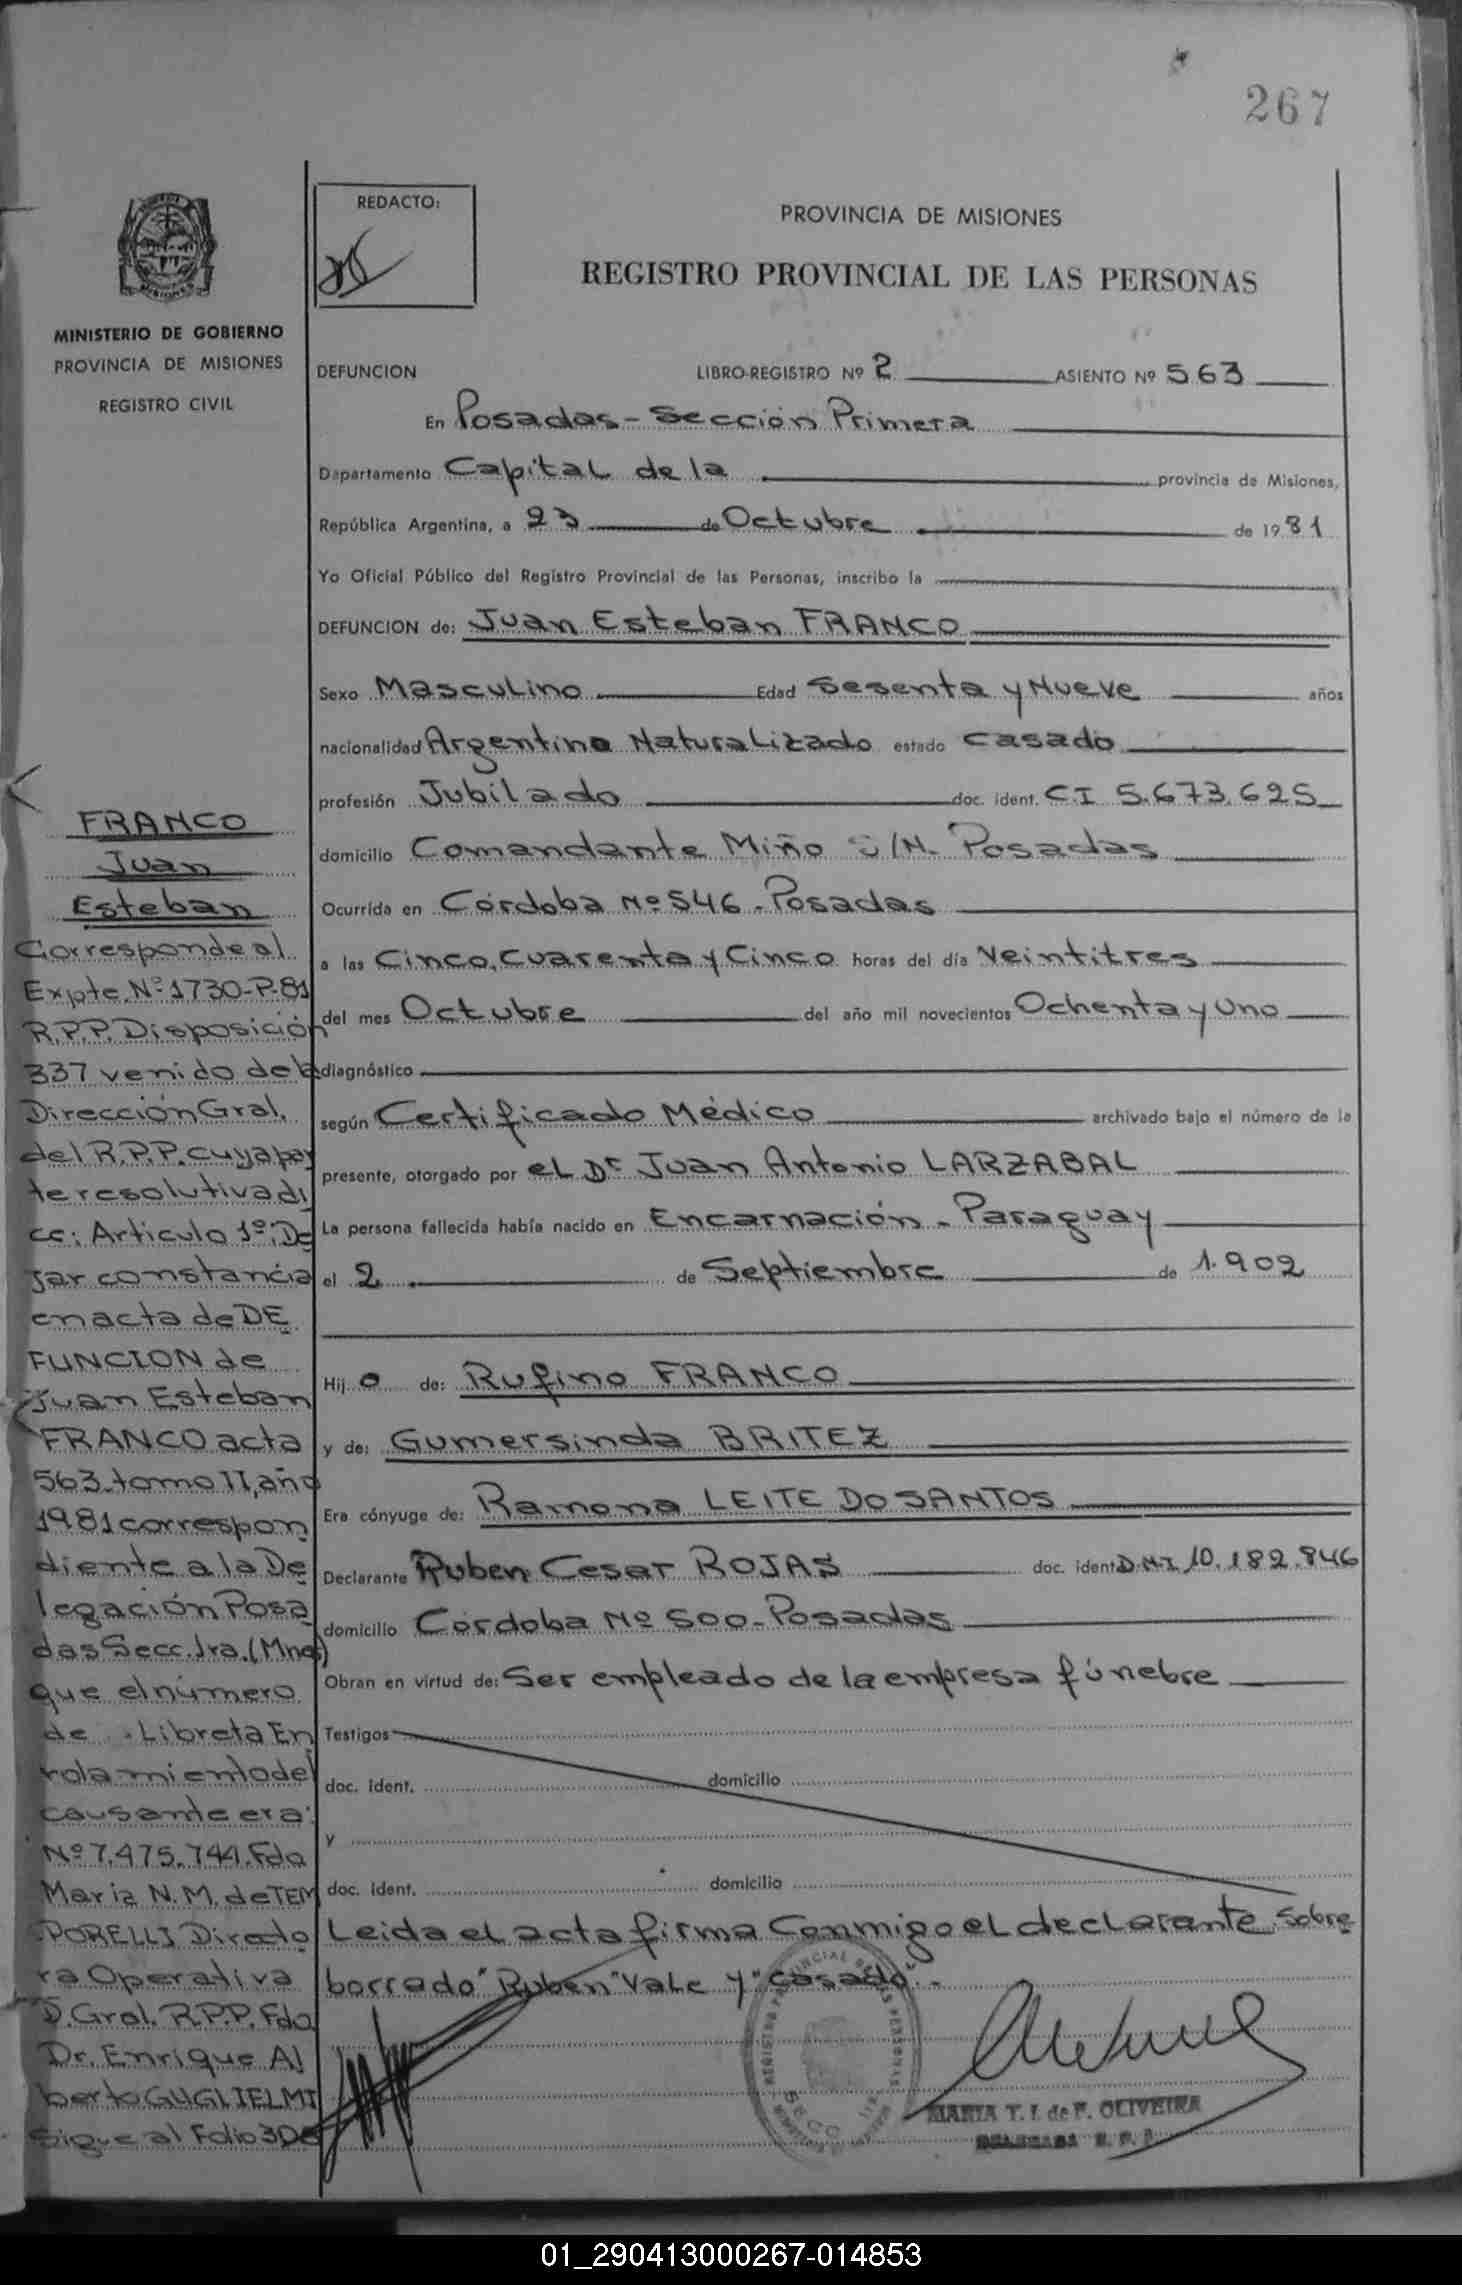 267
REDACTO:
PROVINCIA DE MISIONES
REGISTRO PROVINCIAL DE LAS PERSONAS
MINISTERIO DE GOBIERNO
PROVINCIA DE MISIONES
REGISTRO CIVIL
DEFUNCION LIBRO-REGISTRO Nº 2 ASIENTO Nº 563
En Posadas - Sección Primera
Departamento Capital de la provincia de Misiones,
República Argentina, a 23 de Octubre de 1981
Yo Oficial Público del Registro Provincial de las Personas, inscribo la
DEFUNCION de: Juan Esteban FRANCO
Sexo Masculino Edad Sesenta y Nueve años
nacionalidad Argentino Naturalizado estado Casado
profesión Jubilado doc. ident. C.I 5.673.625
domicilio Comandante Miño S/N. Posadas
Ocurrida en Córdoba Nº 546 - Posadas
a las Cinco, Cuarenta y Cinco horas del día Veintitres
del mes Octubre del año mil novecientos Ochenta y Uno
diagnóstico
según Certificado Médico archivado bajo el número de la
presente, otorgado por el Dr Juan Antonio LARZABAL
La persona fallecida había nacido en Encarnación - Paraguay
el 2 de Septiembre de 1.902
Hijo de: Rufino FRANCO
y de: Gumersinda BRITEZ
Era cónyuge de: Ramona LEITE DO SANTOS
Declarante Ruben Cesar ROJAS doc. ident. D.N.I 10.182.846
domicilio Córdoba Nº 500 - Posadas
Obran en virtud de: Ser empleado de la empresa fúnebre
Testigos
doc. ident. domicilio
y
doc. ident. domicilio
Leida el acta firma Conmigo el declarante. Sobre
borrado "Ruben" Vale y "casado".-
MARIA T. I. de F. OLIVEIRA
FRANCO
Juan
Esteban
Corresponde al
Expte Nº 1730-P-81
R.P.P. Disposición
337 venido de la
Dirección Gral.
del R.P.P. cuya par
te resolutiva di
ce: Articulo 1º: De
jar constancia
en acta de DE
FUNCION de
Juan Esteban
FRANCO acta
563 tomo II, año
1981 correspon
diente a la De
legación Posa
das Secc. 1ra. (Mnes)
que el número
de Libreta En
rolamiento del
causante era:
Nº 7.475.744. Fdo
Maria N. M. de TEM
PORELLI Directo
ra Operativa
D. Gral. R.P.P. Fdo
Dr. Enrique Al
berto GUGLIELMI
Sigue al Folio
01_290413000267-014853